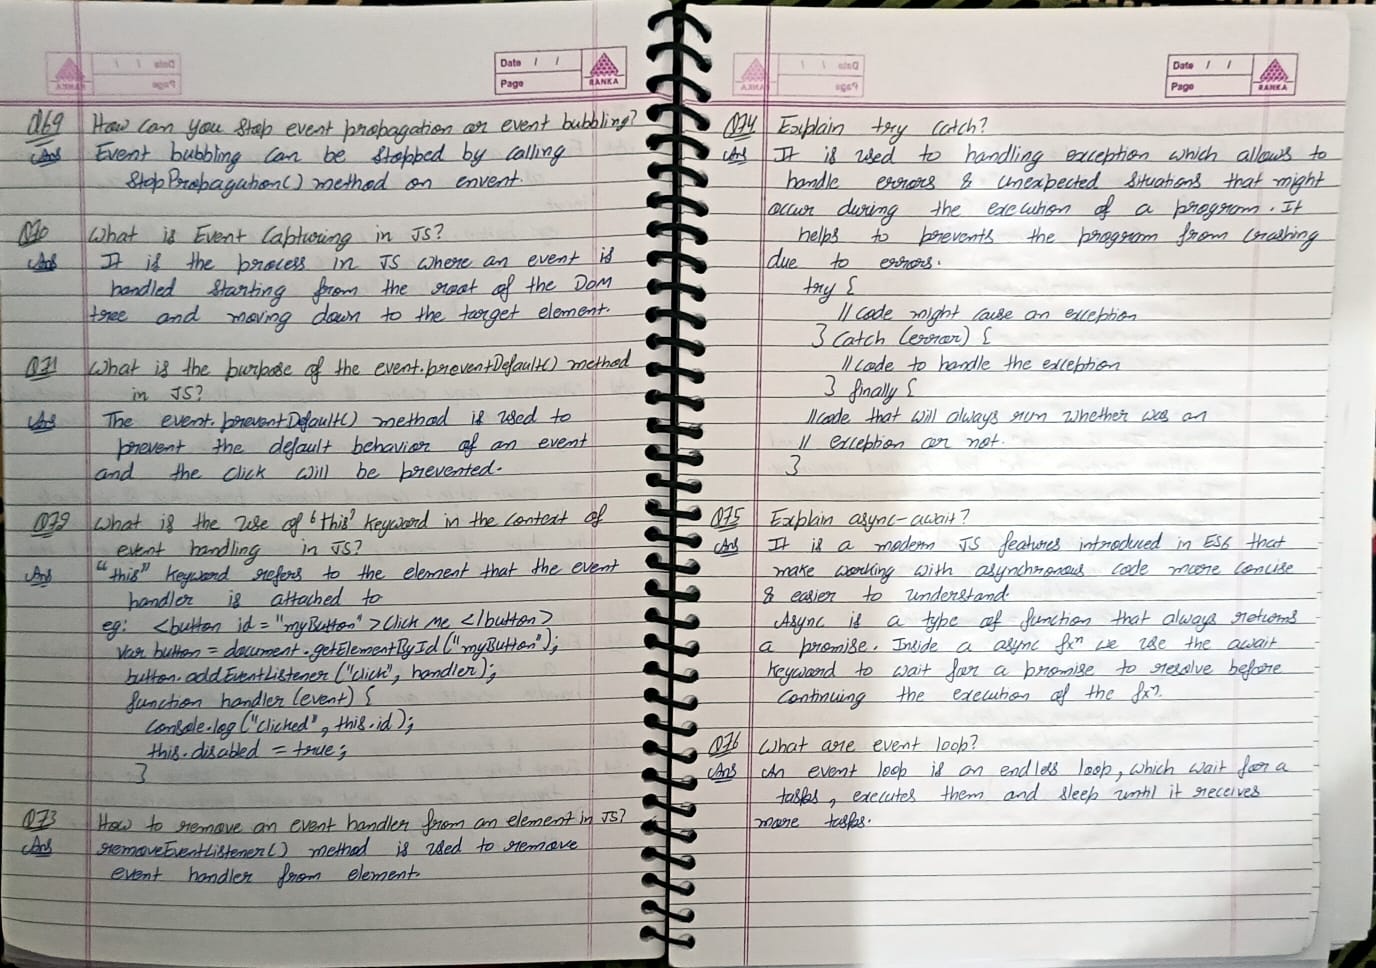 Date / /
Page
RANKA
Q69 How can you stop event propagation or event bubbling?
Ans Event bubbling can be stopped by calling
StopPropagation() method on envent.
Q70 What is Event Capturing in JS?
Ans It is the process in JS where an event is
handled starting from the root of the DOM
tree and moving down to the target element.
Q71 What is the purpose of the event.preventDefault() method
in JS?
Ans The event.preventDefault() method is used to
prevent the default behavior of an event
and the click will be prevented.
Q72 What is the use of "this" keyword in the context of
event handling in JS?
Ans "this" keyword refers to the element that the event
handler is attached to
eg: <button id = "myButton" > Click Me </button>
var button = document.getElementById("myButton");
button.addEventListener("click", handler);
function handler (event) {
console.log ("clicked", this.id);
this.disabled = true;
}
Q73 How to remove an event handler from an element in JS?
Ans removeEventListener() method is used to remove
event handler from element.
Date / /
Page
RANKA
Q74 Explain try catch?
Ans It is used to handling exception which allows to
handle errors & unexpected situations that might
occur during the execution of a program. It
helps to prevents the program from crashing
due to errors.
try {
// code might cause an exception
} catch (error) {
// code to handle the exception
} finally {
// code that will always run whether was an
// exception or not.
}
Q75 Explain async-await?
Ans It is a modern JS features introduced in ES6 that
make working with asynchronous code more concise
& easier to understand.
Async is a type of function that always returns
a promise. Inside a async fxⁿ we use the await
keyword to wait for a promise to resolve before
continuing the execution of the fxⁿ.
Q76 What are event loop?
Ans An event loop is an endless loop, which wait for a
tasks, executes them and sleep until it receives
more tasks.